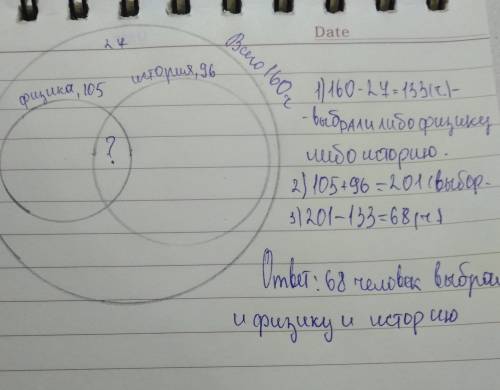 Date
27
Всего 160 ч
физика, 105
история, 96
?
1) 160 - 27 = 133 (ч) -
- выбрали либо физику
либо историю.
2) 105 + 96 = 201 (выбор.
3) 201 - 133 = 68 (ч)
Ответ: 68 человек выбрали
и физику и историю